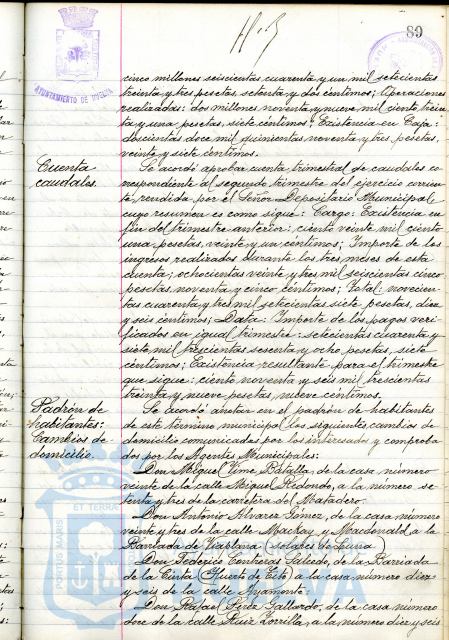 89
AYUNTAMIENTO DE HUELVA
cinco millones seiscientas cuarenta y un mil setecientas
treinta y tres pesetas, setenta y dos céntimos; Operaciones
realizadas: dos millones noventa y nueve mil ciento trein
ta y una pesetas, siete céntimos; Existencia en Caja:
doscientas doce mil quinientas noventa y tres pesetas,
veinte y siete céntimos.
Cuenta
caudales.
Se acordó aprobar cuenta trimestral de caudales co
rrespondiente al segundo trimestre del ejercicio corrien
te, rendida por el Señor Depositario Municipal
cuyo resumen es como sigue: Cargo: Existencia en
fin del trimestre anterior: ciento veinte mil ciento
una pesetas, veinte y un céntimos; Importe de los
ingresos realizados durante los tres meses de esta
cuenta; ochocientas veinte y tres mil seiscientas cinco
pesetas, noventa y cinco céntimos; Total: novecien
tas cuarenta y tres mil setecientas siete pesetas, diez
y seis céntimos; Data: Importe de los pagos veri
ficados en igual trimestre: setecientas cuarenta y
siete mil trescientas sesenta y ocho pesetas, siete
céntimos; Existencia resultante para el trimestre
que sigue: ciento noventa y seis mil trescientas
treinta y nueve pesetas, nueve céntimos.
Padrón de
habitantes:
Cambios de
domicilio.
Se acordó anotar en el padrón de habitantes
de este término municipal los siguientes cambios de
domicilio comunicados por los interesados y comproba
dos por los Agentes Municipales:
Don Miguel Batalla, de la casa número
veinte de la calle Miguel Redondo, a la número se
tenta y tres de la carretera del Matadero.
Don Antonio Alvarez Gómez, de la casa número
veinte y tres de la calle Mackay y Macdonald, a la
Barriada de (solares de
Don Federico Contreras Salcedo, de la Barriada
de la Cinta (Huerto de a la casa número diez
y seis de la calle Ayamonte.
Don Rafael Pérez Gallardo, de la casa número
doce de la calle Ruiz Zorrilla, a la número diez y seis
PORTUS MARIS ET TERRAE